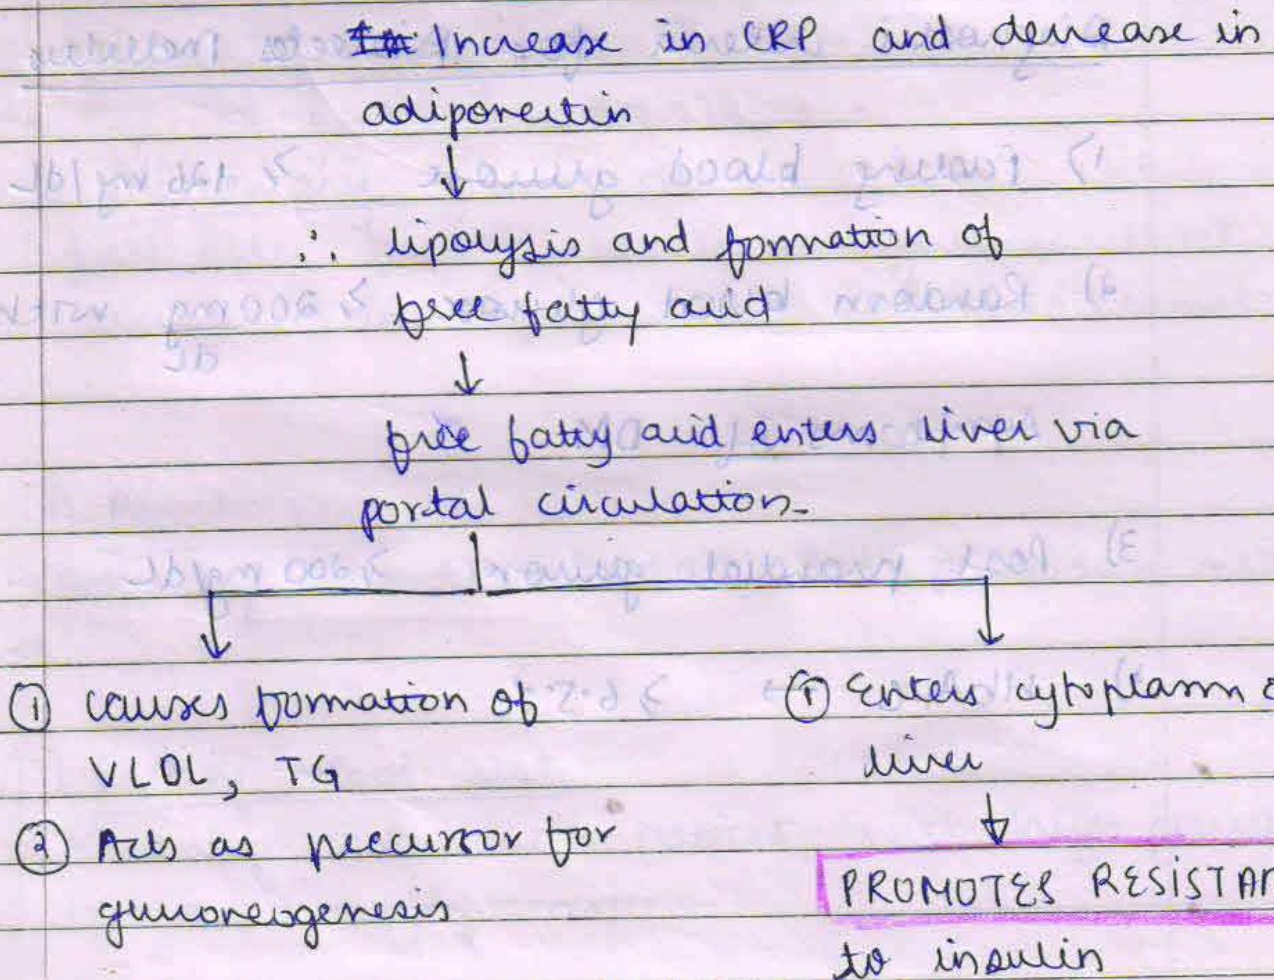 Increase in CRP and decrease in
adiponectin
↓
∴ lipolysis and formation of
free fatty acid
↓
free fatty acid enters liver via
portal circulation.
① causes formation of
VLDL, TG
② Acts as precursor for
gluconeogenesis
① Enters cytoplasm
liver
↓
PROMOTES RESISTAN
to insulin